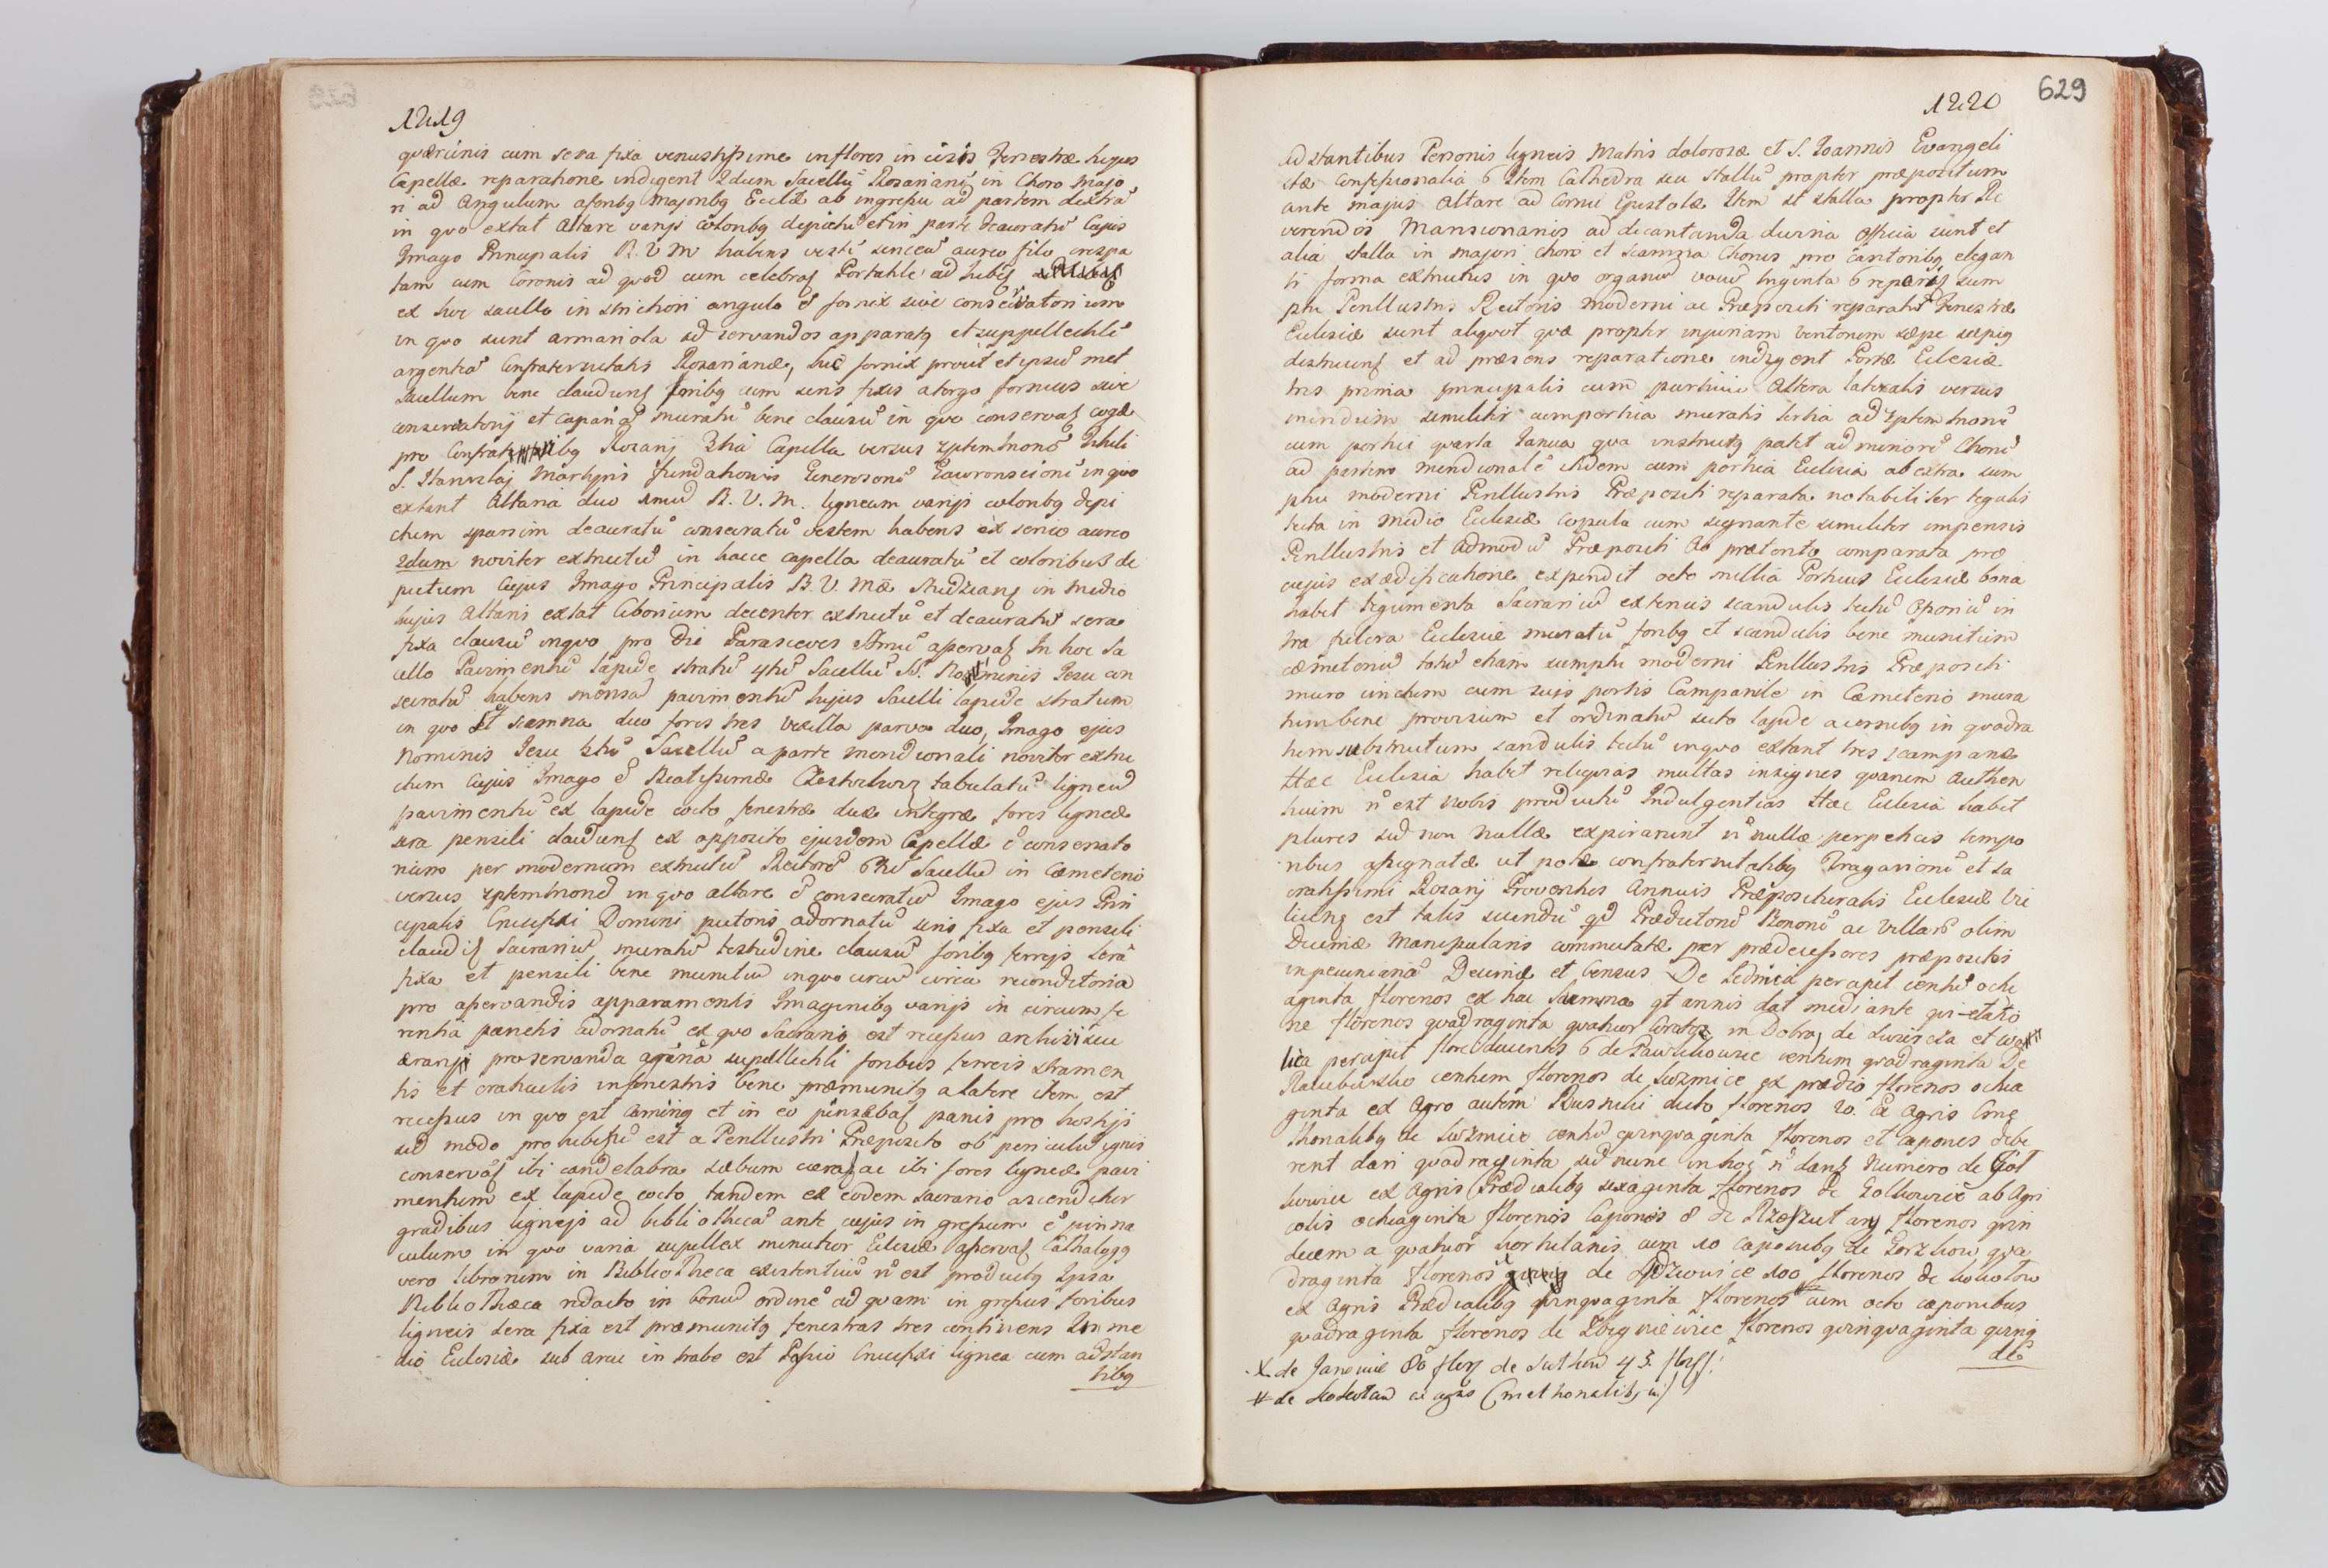 1219
quercinis cum sera fixa venustissime inflores in cisis Fenestræ hujus
Capellæ reparatione indigent 2dum Sacellũ Rosarianũ in Choro Majo
ri ad Angulum a foribg majoribg Ecclæ ab ingressu ad partem dextrã
in quo extat Altare varijs coloribg depictũ et in parte deauratũ Cujus
Imago Principalis B. V. M habens vestẽ sericeã aureo filo crispa
tam cum Coronis ad quod cum celebraʃ Portatile adhibeʃ
ex hoc sacello in strictiori angulo ẽ fornix sive conservatorium
in quo sunt armariola ad servandos apparatg et suppellectilẽ
argenteã Confraternitatis Rosarianæ, hic fornix prout et ipsũ met
sacellum bene claudunʃ foribg cum seris fixis a tergo fornicis sive
conservatorij et capana muratũ bene clausũ in quo conservaʃ
pro Confratribg Rosarij 3tia Capella versus septemtrionẽ Tituli
S. Stanislaj Martyris fundationis Generosorũ Gawronscioru in quo
extant Altaria duo 1mũ B. V. M. ligneum varijs coloribg depi
ctum sparsim deauratũ consecratũ vestem habens ex serico aureo
2dum noviter extructũ in hacce capella deauratũ et coloribus de
pictum Cujus Imago Principalis B. V. Mæ Studzianʃ in medio
hujus Altaris extat Ciborium decenter extructũ et deauratũ sera
fixa clausũ in quo pro Die Parasceves sstmũ aservaʃ In hoc Sa
cello Pavimentũ lapide stratũ 4tũ Sacellũ SS. Nominis Jesu con
secratũ habens mensã pavimentũ hujus Sacelli lapide stratum
in quo st scamna duo fores tres vexilla parva duo, Imago ejus
Nominis Jesu 5tũ Sacellũ a parte meridionali noviter extru
ctum Cujus Imago ẽ Beatissimæ Czestochov tabulatũ ligneũ
pavimentũ ex lapide cocto fenestræ duæ integræ fores ligneæ
sera pensili claudunʃ ex opposito ejusdem Capellæ ẽ conservato
rium per modernum extructũ Rectorẽ 6tũ Sacellũ in Cæmeterio
versus septemtrionẽ in quo altare ẽ consecratũ Imago ejus Prin
cipalis Crucifixi Domini pictoris adornatũ seris fixa et pensili
claudiʃ Sacrariũ muratũ testudine clausũ foribg ferrejs serã
fixa et pensili bene munitũ in quo circũ circa reconditoria
pro aservandis apparamentis Imaginibg varijs in circumfe
rentiã parietis adornatũ ex quo Sacrario est recessus archivi seu
ærarij pro servanda agẽntea supellectili foribus ferreis stramen
tis et craticulis in fenestris bene præmunitg a latere item est
recessus in quo est Caming et in eo pinsebaʃ panis pro hostijs
sed modo prohibitũ est a Perillustri Præposito ob periculũ ignis
conservaʃ ibi candelabra sæbum ceraʃ ac ibi fores ligneæ pavi
mentum ex lapide cocto tandem ex eodem Sacrario ascenditur
gradibus lignejs ad bibliothecã ante cujus in gressum ẽ pinna
culum in quo varia supellex minutior Eclesiæ aservaʃ Cathalogg
vero librorum in Bibliotheca existentiũ ñ est productg Ipsa
Bibliothæca redacto in bonũ ordinẽ ad quam in gressus foribus
ligneis sera fixa est præmunitg fenestras tres continens In me
dio Eclesiæ sub arcu in trabe est Passio Crucifixi lignea cum adstan
tibg
1220
629
ad stantibus Personis ligneis Matris dolorosæ et S. Joannis Evangeli
stæ Confessionalia 6 Item Cathedra seu stallũ propter præpositum
ante majus Altare ad Cornu Epistolæ Item st stalla propter Re
verendos Mansionarios ad decantanda divina Officia sunt et
alia stalla in majori choro et scamna Chorus pro cantoribg elegan
ti forma extructus in quo organũ vocũ triginta 6 reperiʃ sum
ptu Perillustris Rectoris moderni ac Præpositi reparatũ Fenestræ
Eclesiæ sunt aliquot quæ propter injuriam ventorum sæpe sæpig
destruunʃ et ad præsens reparatione indigent Portæ Eclesiæ
tres prima principalis cum porticu Altera lateralis versus
meridiem similiter cum portica muratis tertia ad septemtrionẽ
cum portici quarta Janua qua instructg patet ad minorẽ Chorũ
ad partem meridionalẽ itidem cum portica Eclesia ab extra sum
ptu moderni Perillustris Præpositi reparata notabiliter tegulis
tecta in medio Eclesiæ copula cum signante similiter impensis
Perillustris et Admodũ Præpositi ao prætento comparata pro
cujus exædificatione expendit octo millia Porticus Eclesiæ bona
habet tegumenta Sacrariũ extericis scandulis tectũ Ossoriũ in
tra fulcra Eclesiæ muratũ foribg et scandulis bene munitum
cæmeteriũ totũ etiam sumptu moderni Perillustris Præpositi
muro cinctum cum suis portis Campanile in Cæmeterio mura
tum bene provisum et ordinatũ secto lapide a cernibg in quadra
tum substructum scandulis tectũ in quo extant tres campanæ
Hæc Eclesia habet reliquias multas insignes quarum authen
ticum ñ est nobis productũ Indulgentias Hæc Eclesia habet
plures sed non nullæ expirarunt ñ nullæ perpetuis tempo
ribus assignatæ ut pote confraternitatibg Tragarionũ et Sa
cratissimi Rosarij Proventus Annuis Præpositurali Eclesiæ Vie
licieng est talis sciendũ qd Prædictorũ Bonorũ ac Villarũ olim
Decimæ Manipularis commutatæ per prædecessores præpositos
in pecuniariã Decimæ et Census De Lednica percipit centũ octu
aginta florenos ex hac Summa qt annis dat mediante quietatio
ne florenos quadraginta quatuor Curatg in Dobra, de Surówka et
lica percipit flore ducentos 6 de Pawlikowice centum quadraginta De
Raciborsko centum florenos de Sułkow ex prædio florenos octua
ginta ex Agro autem dicto florenos 20. Ex Agris Cme
thonalibg de centũ quinquaginta florenos et capones debe
rent dari quadraginta sed nunc in hoc ñ danʃ numero de
ex Agris Prædialibg sexaginta florenos De ab Agri
colis octuaginta florenos Capones 8 de florenos quin
decem a quatuor hortulanis cum 10 caponibg de Gorzkow qua
draginta florenos de 100 florenos de kokotow
ex Agris Prædialibg quinquaginta florenos cum octo caponibus
quadraginta florenos de Zbigniewiec florenos quinquaginta quing
de
X. de Janowice 80 flor de Sułkow 43. flor
# de Kokotow ex agris Cmethonalibʒ